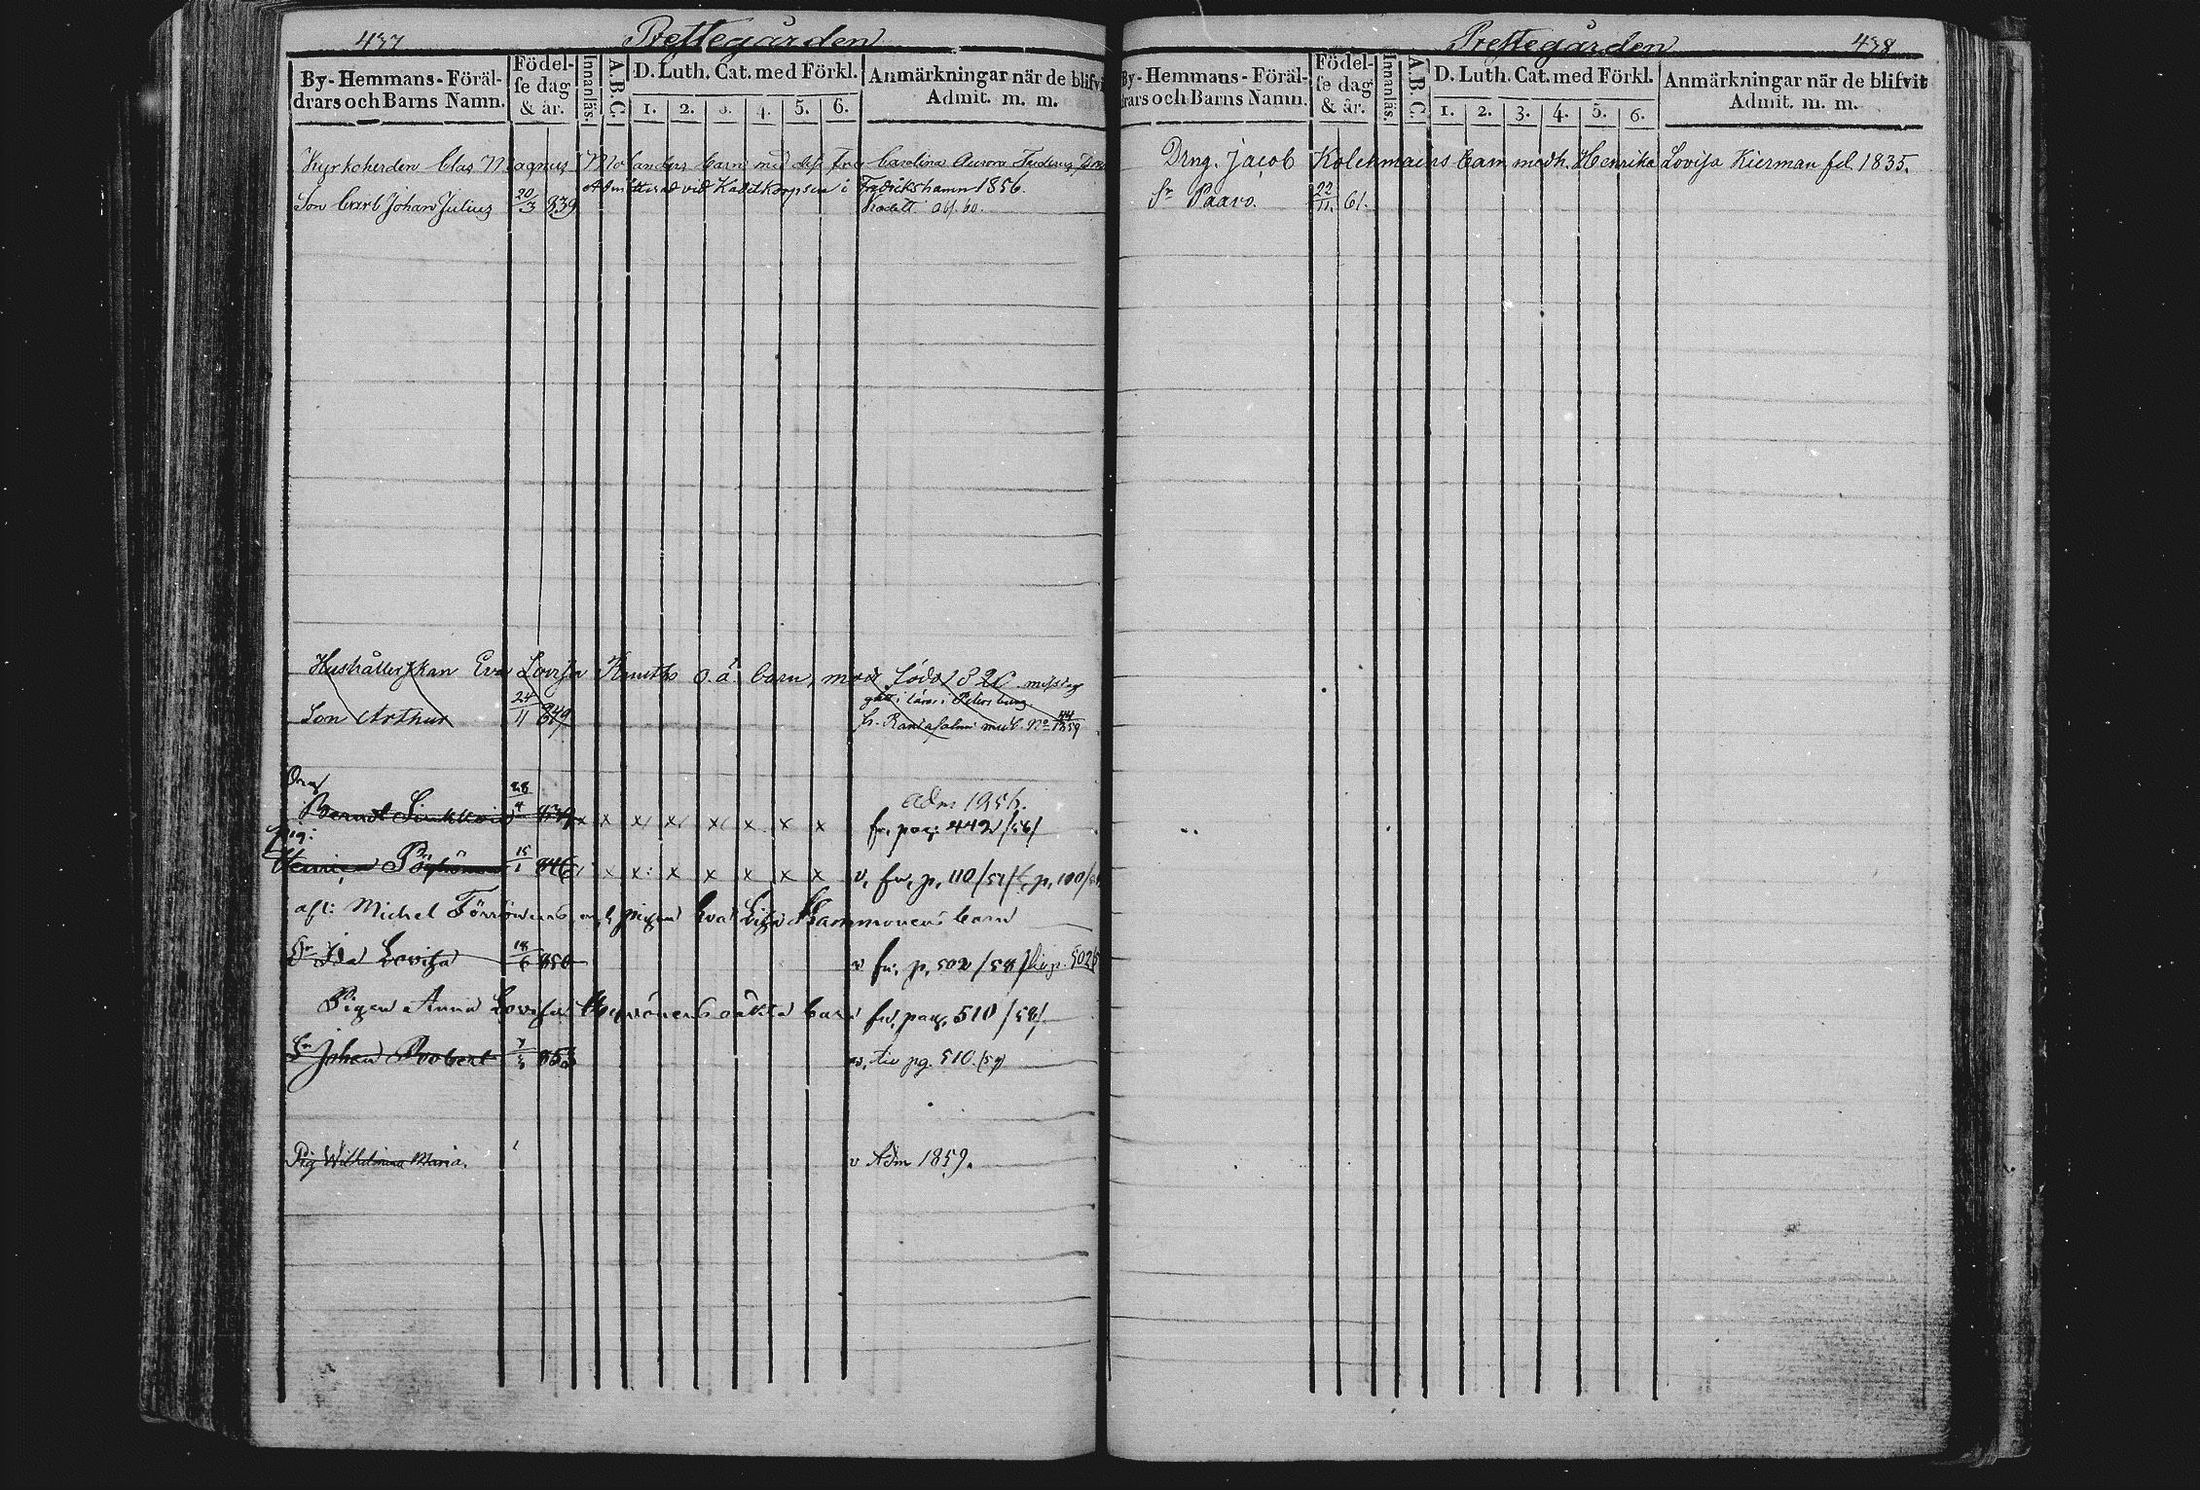 437 Prestegården
By- Hemmans- Föräl-
drars och Barns Namn.
Födel-
se dag
& år.
Innanläs.
A.B.C.
D. Luth. Cat. med Förkl.
1. 2. 3. 4. 5. 6.
Anmärkningar när de blifvi
Admit. m. m.
Kyrkoherden Clas Magnus Molanders barn med dess Fru Carolina Aurora
Admitterad vid Kadettkorpsen i Fredrikshamn 1856.
Son Carl Johan Julius 20/3 839 Kadett
Hushållerskan Eva Lovisa Knuths o.ä. barn, mod. född 820
gått i lära i Petersburg.
Son Arthur 24/11 849 fr. Rantasalmi med b. No 44 1859
Dreng
Adm 1856.
Berndt 28/4 839 x x x x x x x x fr. pag: 442/56/
Pig:
15/1 846 x x x x x x x v. fr. p. 110/57/
afl: Michel Törrönens och pigan Eva Lisa barn
Dr Ida Lovisa 18/6 856 v fr. p. 502/58/
Pigan Anna Lovisa oäkta barn fr. pag. 510/58/
Sn Johan Robert 7/5 853 v. tio pg. 510./59
Pig Wilhelmina Maria. v Adm 1859.
Prestegården 438
By- Hemmans- Föräl-
drars och Barns Namn.
Födel-
se dag
& år.
Innanläs.
A.B.C.
D. Luth. Cat. med Förkl.
1. 2. 3. 4. 5. 6.
Anmärkningar när de blifvit
Admit. m. m.
Drng. Jacob Kolehmains barn med h. Henrika Lovisa Kierman föd 1835.
Sn Paavo. 22/11. 61.